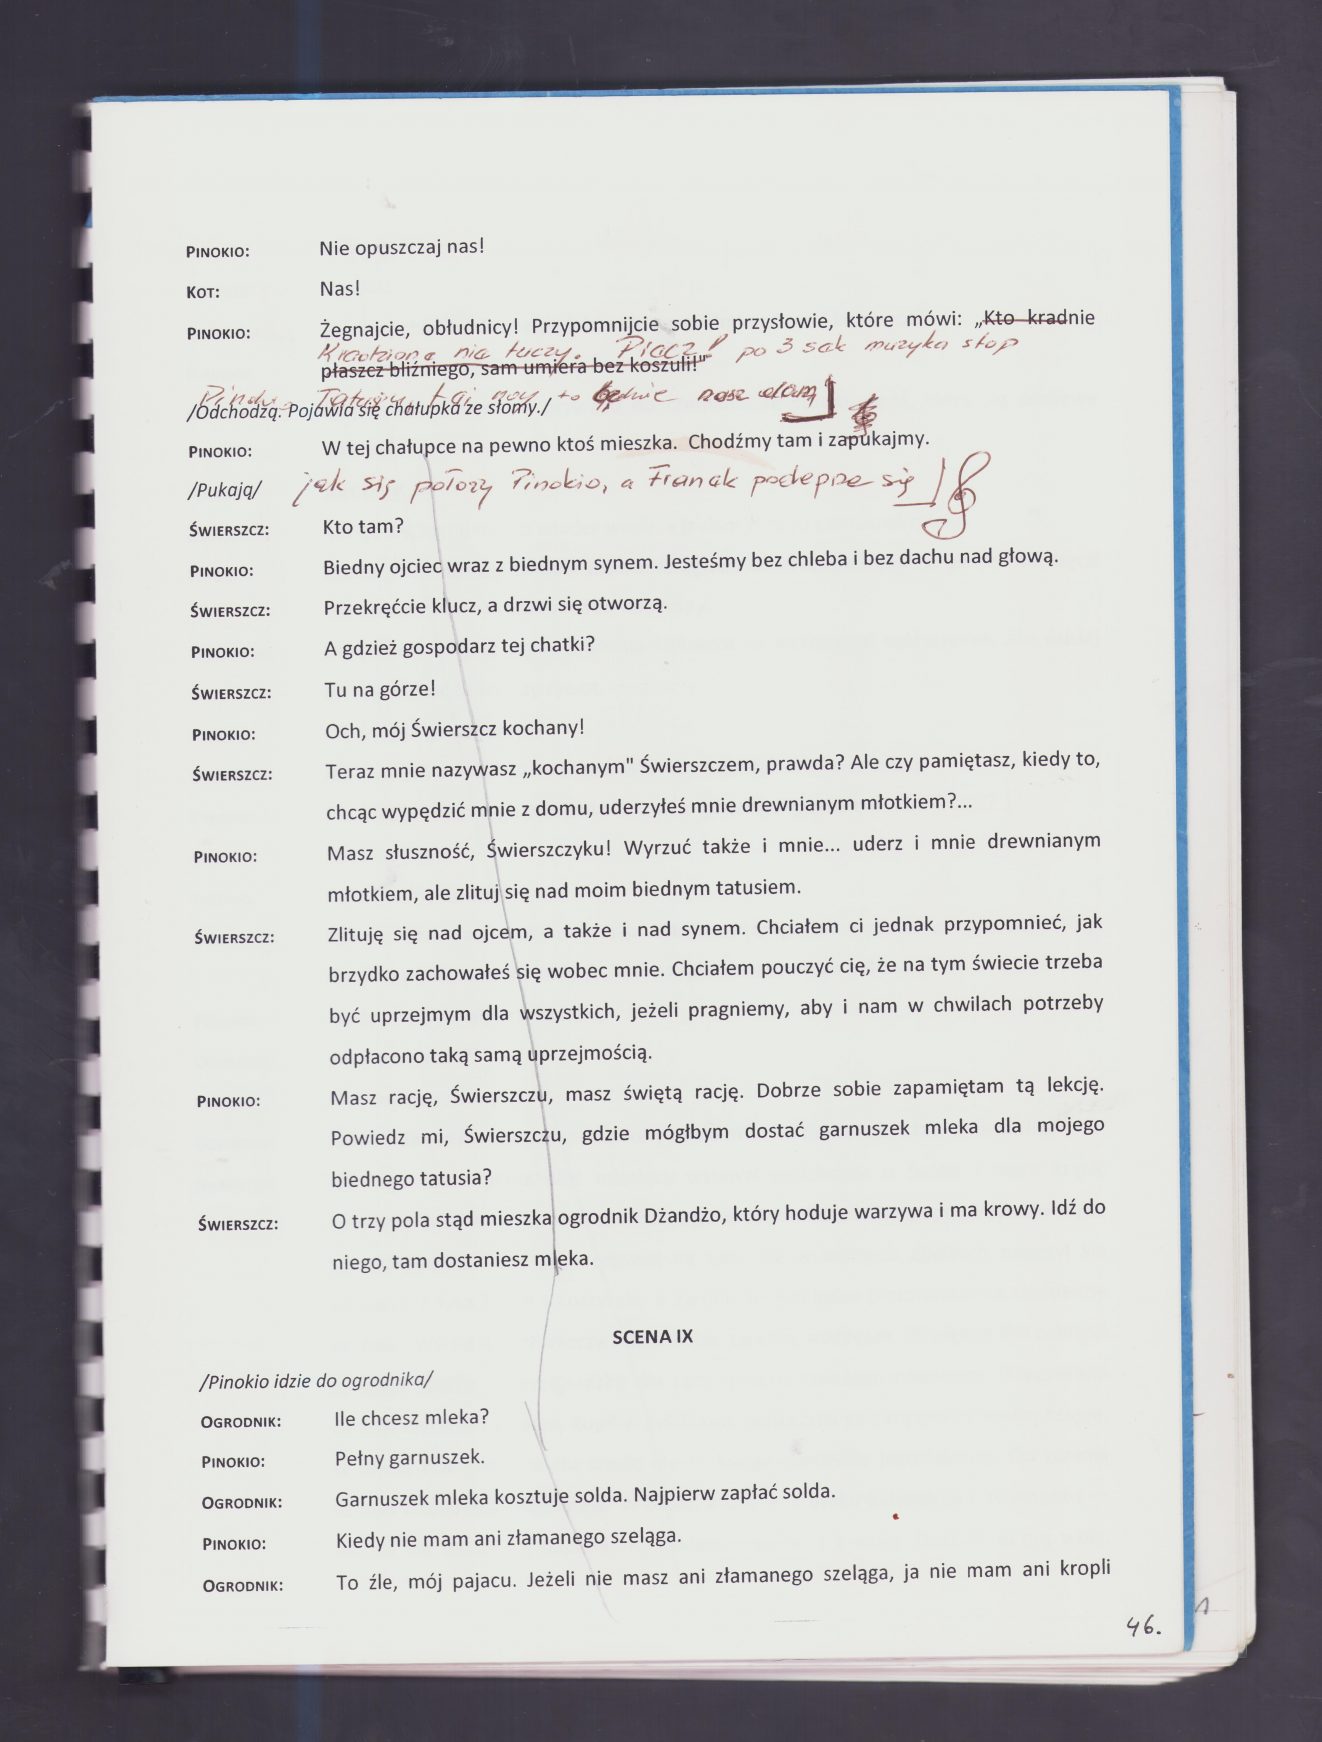 PINOKIO: Nie opuszczaj nas!
KOT: Nas!
PINOKIO: Żegnajcie, obłudnicy! Przypomnijcie sobie przysłowie, które mówi: „Kto kradnie
Kradzione nie tuczy. Płacz! po 3 sek muzyka stop
płaszcz bliźniego, sam umiera bez koszuli!"
Tatusiu, to będzie nasz dom
/Odchodzą. Pojawia się chałupka ze słomy./
PINOKIO: W tej chałupce na pewno ktoś mieszka. Chodźmy tam i zapukajmy.
/Pukają/ jak się położy Pinokio, a Franek podeprze się
ŚWIERSZCZ: Kto tam?
PINOKIO: Biedny ojciec wraz z biednym synem. Jesteśmy bez chleba i bez dachu nad głową.
ŚWIERSZCZ: Przekręćcie klucz, a drzwi się otworzą.
PINOKIO: A gdzież gospodarz tej chatki?
ŚWIERSZCZ: Tu na górze!
PINOKIO: Och, mój Świerszcz kochany!
ŚWIERSZCZ: Teraz mnie nazywasz „kochanym" Świerszczem, prawda? Ale czy pamiętasz, kiedy to,
chcąc wypędzić mnie z domu, uderzyłeś mnie drewnianym młotkiem?...
PINOKIO: Masz słuszność, Świerszczyku! Wyrzuć także i mnie... uderz i mnie drewnianym
młotkiem, ale zlituj się nad moim biednym tatusiem.
ŚWIERSZCZ: Zlituję się nad ojcem, a także i nad synem. Chciałem ci jednak przypomnieć, jak
brzydko zachowałeś się wobec mnie. Chciałem pouczyć cię, że na tym świecie trzeba
być uprzejmym dla wszystkich, jeżeli pragniemy, aby i nam w chwilach potrzeby
odpłacono taką samą uprzejmością.
PINOKIO: Masz rację, Świerszczu, masz świętą rację. Dobrze sobie zapamiętam tą lekcję.
Powiedz mi, Świerszczu, gdzie mógłbym dostać garnuszek mleka dla mojego
biednego tatusia?
ŚWIERSZCZ: O trzy pola stąd mieszka ogrodnik Dżandżo, który hoduje warzywa i ma krowy. Idź do
niego, tam dostaniesz mleka.
SCENA IX
/Pinokio idzie do ogrodnika/
OGRODNIK: Ile chcesz mleka?
PINOKIO: Pełny garnuszek.
OGRODNIK: Garnuszek mleka kosztuje solda. Najpierw zapłać solda.
PINOKIO: Kiedy nie mam ani złamanego szeląga.
OGRODNIK: To źle, mój pajacu. Jeżeli nie masz ani złamanego szeląga, ja nie mam ani kropli
46.